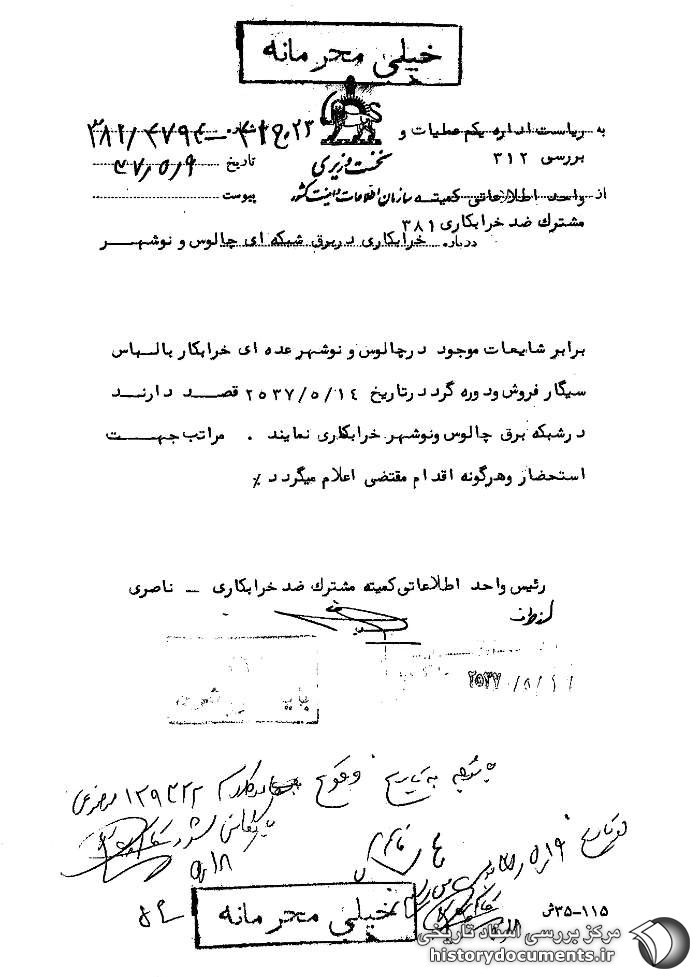 خیلی محرمانه
به ریاست اداره یکم عملیات و
بررسی ۳۱۲
نخست وزیری
شماره
تاریخ ۳۷/۵/۹
پیوست
سازمان اطلاعات و امنیت کشور
از واحد اطلاعاتی کمیته
مشترك ضد خرابکاری ۳۸۱
درباره خرابکاری در برق شبکه ای چالوس و نوشهر
برابر شایعات موجود در چالوس و نوشهر عده ای خرابکار بالباس
سیگار فروش ودوره گرد در تاریخ ۲۵۳۷/۵/۱۴ قصد دارند
در شبکه برق چالوس ونوشهر خرابکاری نمایند . مراتب جهت
استحضار وهرگونه اقدام مقتضی اعلام میگردد ٪
رئیس واحد اطلاعاتی کمیته مشترك ضد خرابکاری – ناصری
از طرف
توجه به تاریخ وقوع
خیلی محرمانه
۳۵-۱۱۵ش
مرکز بررسی اسناد تاریخی
historydocuments.ir